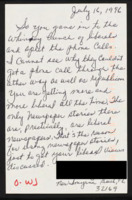 July 16, 1996
So you gave in to the
Whining Church of liberals
and split the phone calls.
I cannot see why they cannot
get a phone call through the
other way as well as Republican
You are getting more and
more liberal all the time. The
only newspaper stories there
are, practically are liberal
newspapers. That's the reason
for using newspaper stories,
just to get your liberal views
discussed.
O. WJ
32169